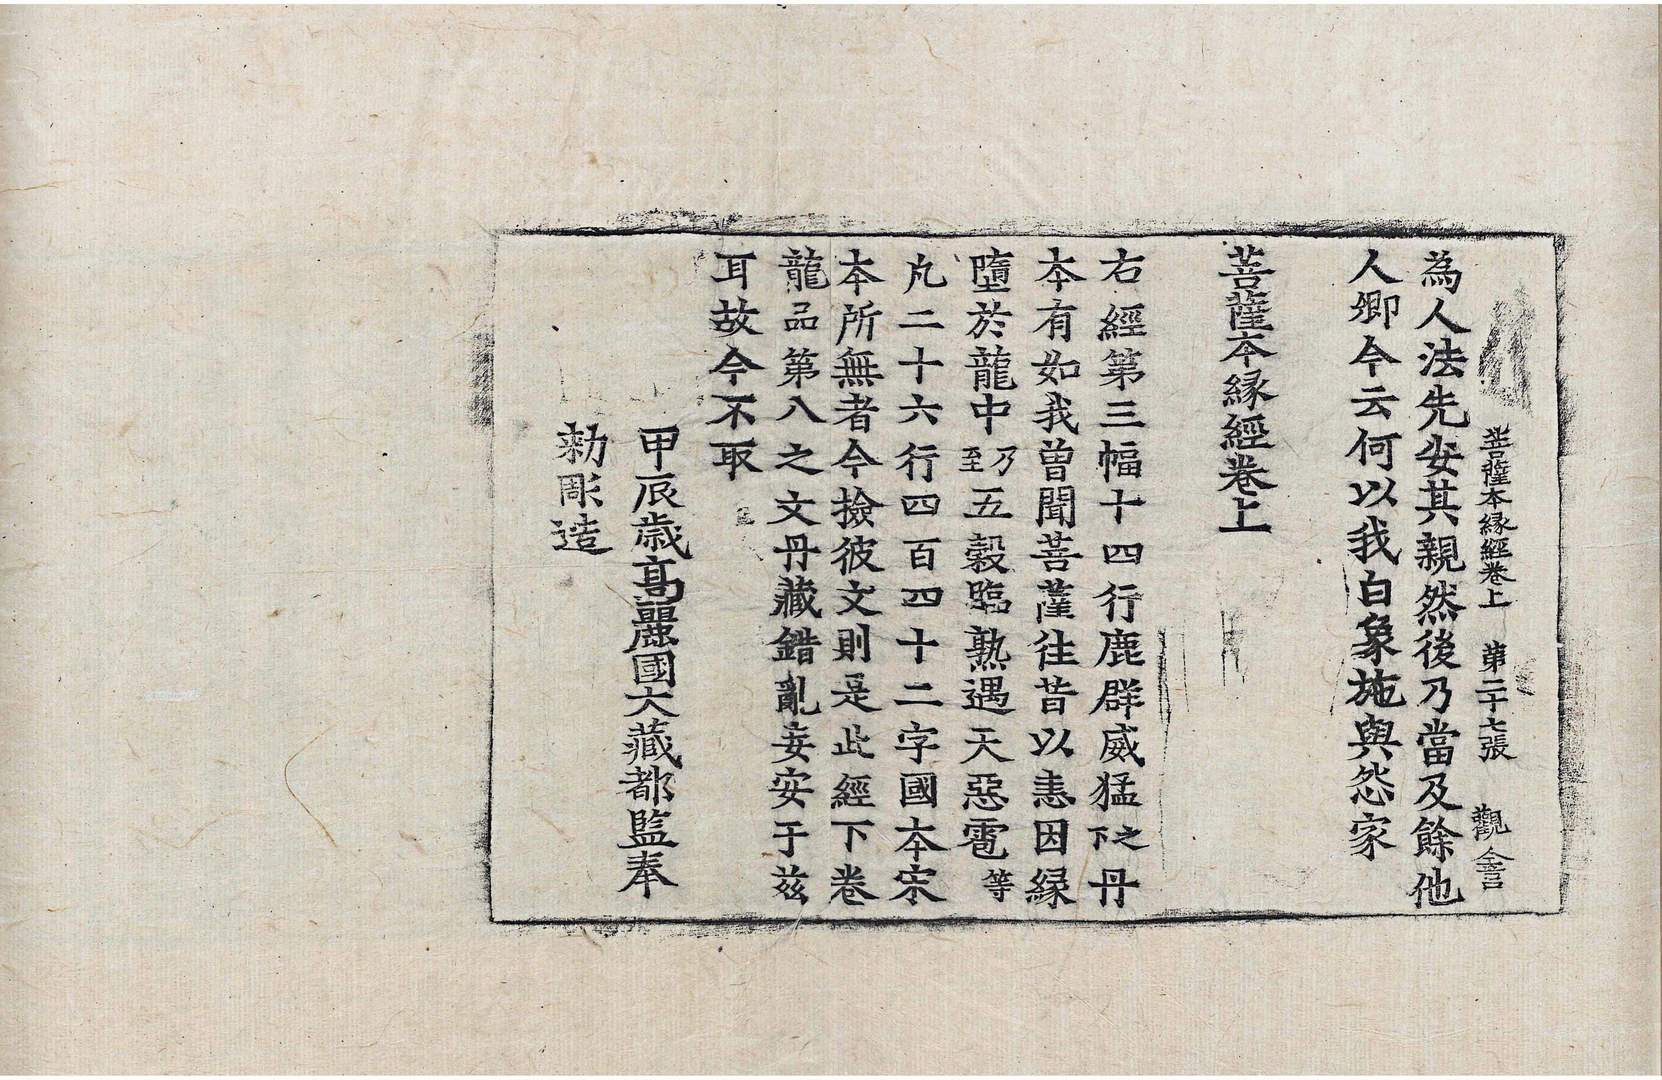 菩薩本縁經卷上　第二十七張　觀　合言
為人法先安其親然後乃當及餘他
人卿今云何以我白象施與怨家
菩薩本縁經卷上
右經第三幅十四行鹿群威猛之下丹
本有如我曾聞菩薩往昔以恚因縁
墮於龍中乃至五穀臨熟遇天惡雹等
凡二十六行四百四十二字國本宋
本所無者今撿彼文則是此經下卷
龍品第八之文丹藏錯亂妄安于兹
耳故今不取
甲辰歳高麗國大藏都監奉
勅彫造